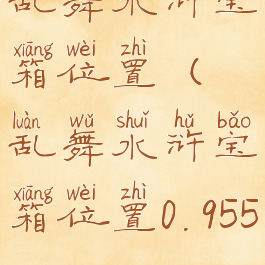 乱舞水浒宝
xiāng wèi zhì
箱位置（
luàn wǔ shuǐ hǔ bǎo
乱舞水浒宝
xiāng wèi zhì
箱位置0.955